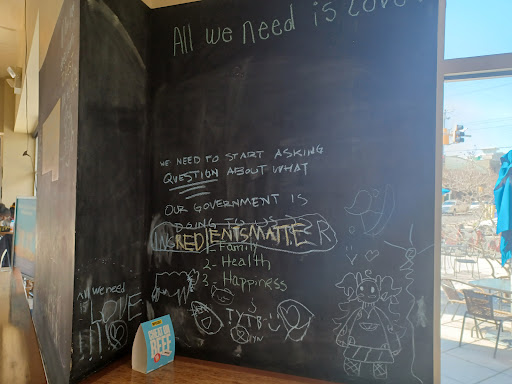 All we need is Love!
WE NEED TO START ASKING
QUESTION ABOUT WHAT
OUR GOVERNMENT IS
DOING TO US
INGREDIENTSMATTER
Family
2- Health
3. Happiness
TYTB
All we need
is LOVE
BEEF